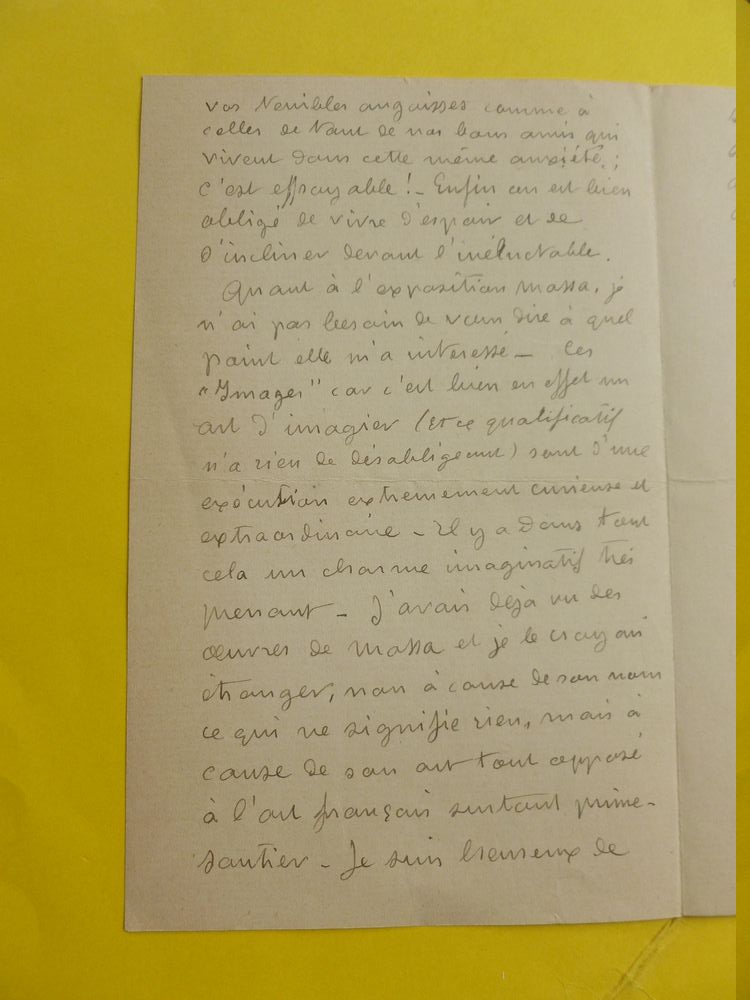 vos terribles angoisses comme à
celles de tant de nos bons amis qui
vivent dans cette même anxiété ;
c'est effroyable ! _ Enfin on est bien
obligé de vivre d'espoir et de
s'incliner devant l'inéluctable.
Quant à l'exposition Mossa, je
n'ai pas besoin de vous dire à quel
point elle m'a intéressé _ Ces
"Images" car c'est bien en effet un
art d'imagier (et ce qualificatif
n'a rien de désobligeant) sont d'une
exécution extrêmement curieuse et
extraordinaire _ Il y a dans tout
cela un charme imaginatif très
prenant _ J'avais déjà vu des
œuvres de Mossa et je le croyais
étranger, non à cause de son nom
ce qui ne signifie rien, mais à
cause de son art tout opposé
à l'art français surtout prime-
sautier _ Je suis heureux de